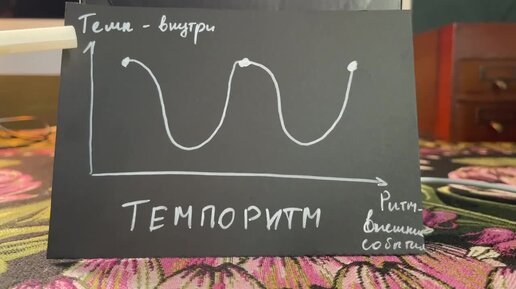 Темп - внутри
ТЕМПОРИТМ
Ритм-
внешние
события